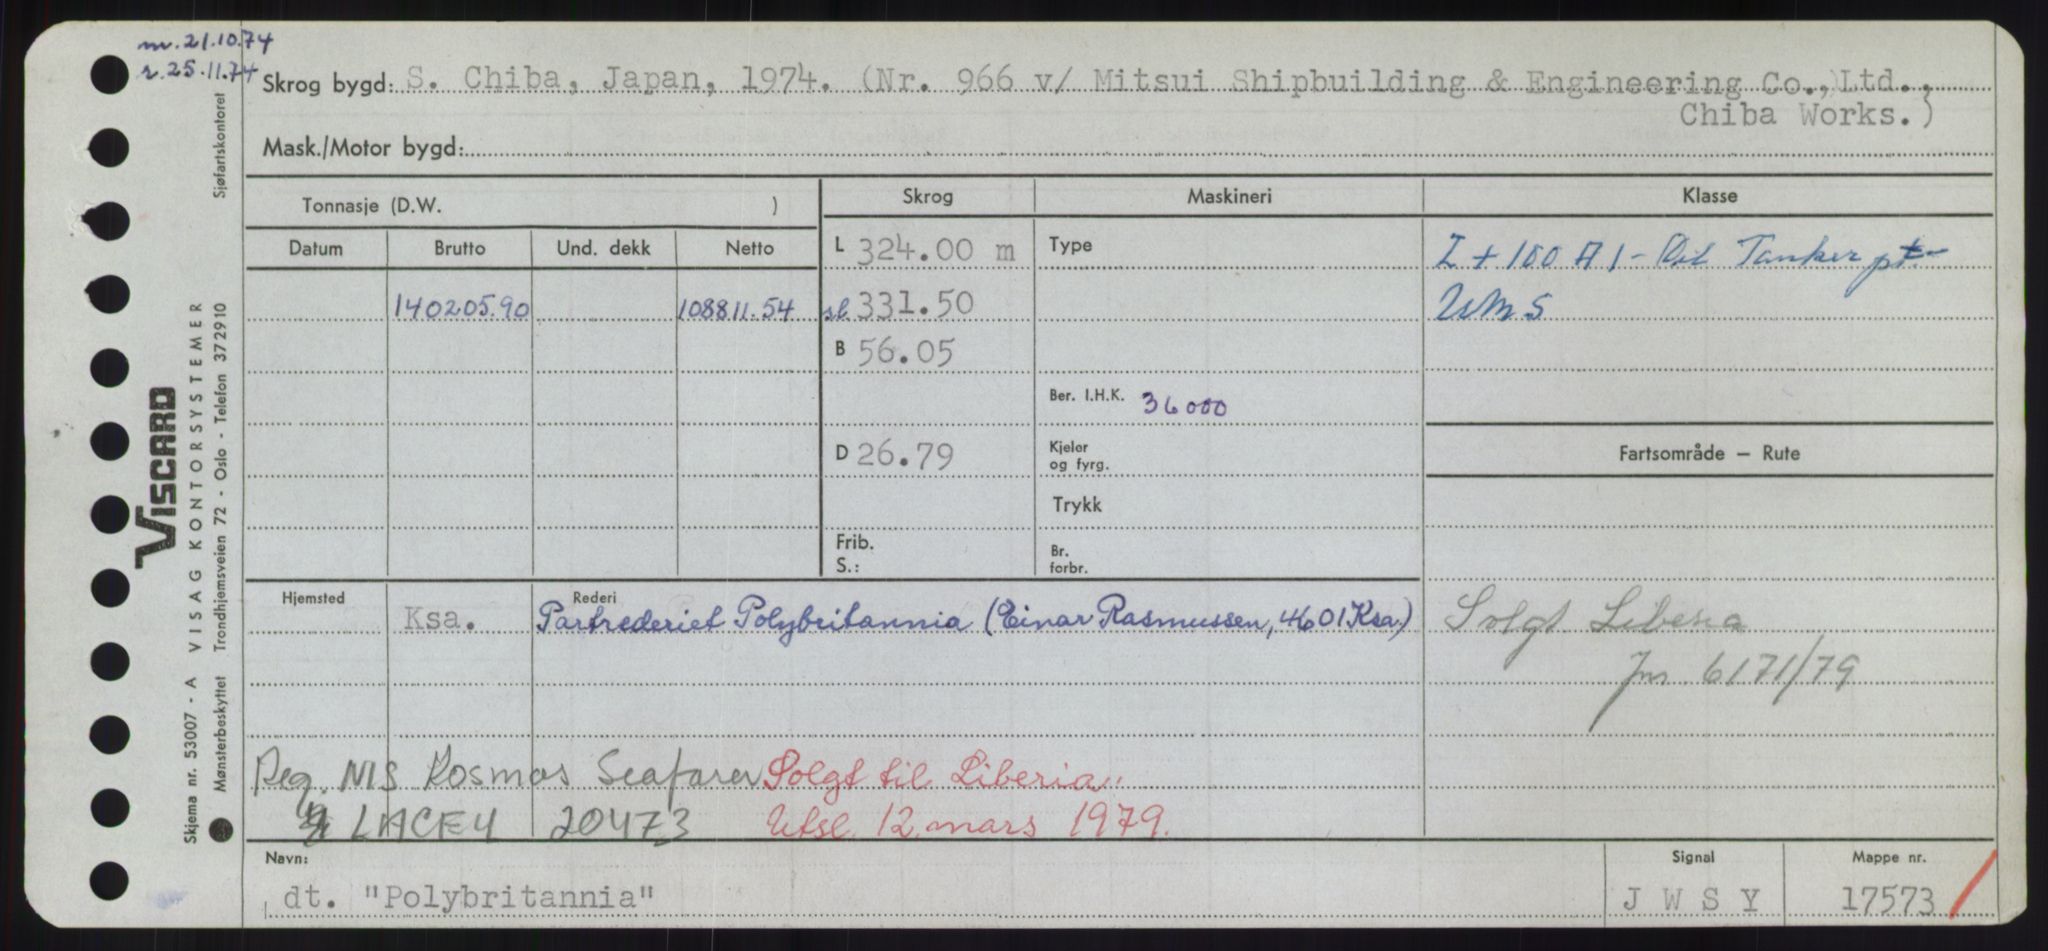 m. 21.10.74
r. 25.11.74
Skrog bygd: S. Chiba, Japan, 1974. (Nr. 966 v/ Mitsui Shipbuilding & Engineering Co.,Ltd.,
Chiba Works.)
Mask./Motor bygd:
Tonnasje (D.W. )
Skrog
Maskineri
Klasse
Datum Brutto Und. dekk Netto
L 324.00 m
Type
I + 100 A 1 - Oil Tanker pt.-
140205.90 108811.54
sl 331.50
UMS
B 56.05
Ber. I.H.K. 36000
D 26.79
Kjeler
og fyrg.
Fartsområde — Rute
Trykk
Frib.
S.:
Br.
forbr.
Hjemsted Rederi
Ksa. Partrederiet Polybritannia (Einar Rasmussen, 4601 Ksa.)
Solgt Liberia
Jnr 6171/79
Reg. NIS Kosmos Seafarer
Solgt til Liberia
LACE4 20473
Utsl. 12. mars 1979.
Navn: Signal Mappe nr.
dt. "Polybritannia" J W S Y 17573
VISCARD
Skjema nr. 53007 - A VISAG KONTORSYSTEMER
Mønsterbeskyttet Trondhjemsveien 72 - Oslo - Telefon 372910 Sjøfartskontoret